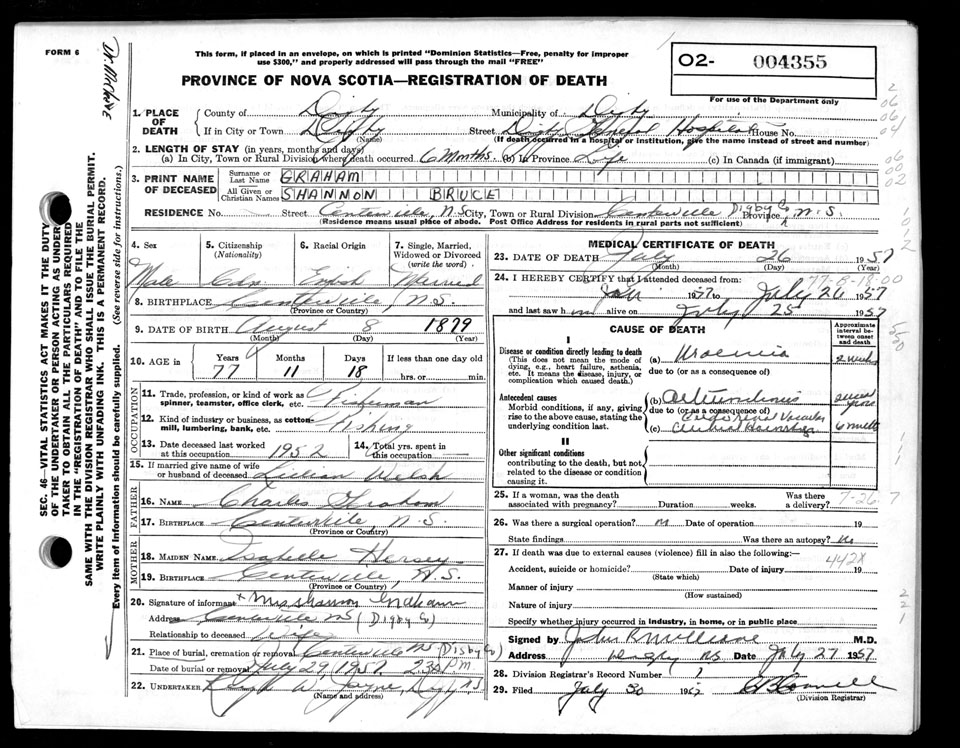 FORM 6
This form, if placed in an envelope, on which is printed "Dominion Statistics—Free, penalty for improper
use $300," and properly addressed will pass through the mail "FREE"
PROVINCE OF NOVA SCOTIA—REGISTRATION OF DEATH
O2- 004355
For use of the Department only
SEC. 46—VITAL STATISTICS ACT MAKES IT THE DUTY
OF THE UNDERTAKER OR PERSON ACTING AS UNDER-
TAKER TO OBTAIN ALL THE PARTICULARS REQUIRED
IN THE "REGISTRATION OF DEATH" AND TO FILE THE
SAME WITH THE DIVISION REGISTRAR WHO SHALL ISSUE THE BURIAL PERMIT.
WRITE PLAINLY WITH UNFADING INK. THIS IS A PERMANENT RECORD.
Every item of Information should be carefully supplied. (See reverse side for instructions.)
1. PLACE OF DEATH
County of Digby Municipality of Digby
If in City or Town Digby Street Digby General Hospital House No.
(Name) (If death occurred in a hospital or institution, give the name instead of street and number)
2. LENGTH OF STAY (in years, months and days)
(a) In City, Town or Rural Division where death occurred 6 Months (b) In Province Life (c) In Canada (if immigrant)
3. PRINT NAME OF DECEASED
Surname or Last Name GRAHAM
All Given or Christian Names SHANNON BRUCE
RESIDENCE No. Street Centerville, N.S. City, Town or Rural Division Centerville Digby Co Province N.S.
(Residence means usual place of abode. Post Office Address for residents in rural parts not sufficient)
4. Sex Male
5. Citizenship (Nationality) Cdn.
6. Racial Origin English
7. Single, Married, Widowed or Divorced (write the word) Married
8. BIRTHPLACE Centerville, N.S.
(Province or Country)
9. DATE OF BIRTH August 8 1879
(Month) (Day) (Year)
10. AGE in Years 77 Months 11 Days 18 If less than one day old
hrs. or min.
OCCUPATION
11. Trade, profession, or kind of work as spinner, teamster, office clerk, etc. Fisherman
12. Kind of industry or business, as cotton mill, lumbering, bank, etc. Fishing
13. Date deceased last worked at this occupation 1952
14. Total yrs. spent in this occupation
15. If married give name of wife or husband of deceased Lillian Welsh
FATHER
16. NAME Charles Graham
17. BIRTHPLACE Centerville, N.S.
(Province or Country)
MOTHER
18. MAIDEN NAME Isabelle Hersey
19. BIRTHPLACE Centerville, N.S.
(Province or Country)
20. Signature of informant x Mrs Shannon Graham
Address Centerville NS (Digby Co)
Relationship to deceased Wife
21. Place of burial, cremation or removal Centerville NS (Digby Co)
Date of burial or removal July 29, 1957 2.30 P.M.
22. UNDERTAKER W. Jayne, Digby NS
(Name and address)
MEDICAL CERTIFICATE OF DEATH
23. DATE OF DEATH July 26 1957
(Month) (Day) (Year)
24. I HEREBY CERTIFY that I attended deceased from:
Jan 1957 to July 26 1957
and last saw him alive on July 25 1957
CAUSE OF DEATH
Approximate interval between onset and death
I
Disease or condition directly leading to death
(This does not mean the mode of dying, e.g., heart failure, asthenia, etc. It means the disease, injury, or complication which caused death.)
(a) Uraemia 2 weeks
due to (or as a consequence of)
Antecedent causes
Morbid conditions, if any, giving rise to the above cause, stating the underlying condition last.
(b)
due to (or as a consequence of)
Cardio Renal Vascular
(c) Cerebral Hemorrhage 6 months
II
Other significant conditions
contributing to the death, but not related to the disease or condition causing it.
25. If a woman, was the death associated with pregnancy? Duration weeks. Was there a delivery?
7-26 7
26. Was there a surgical operation? Date of operation 19
State findings Was there an autopsy?
27. If death was due to external causes (violence) fill in also the following:—
442X
Accident, suicide or homicide? Date of injury 19
(State which)
Manner of injury
(How sustained)
Nature of injury
Specify whether injury occurred in industry, in home, or in public place
Signed by John R McCleave M.D.
Address Digby NS Date July 27 1957
28. Division Registrar's Record Number
29. Filed July 30 1957
(Division Registrar)